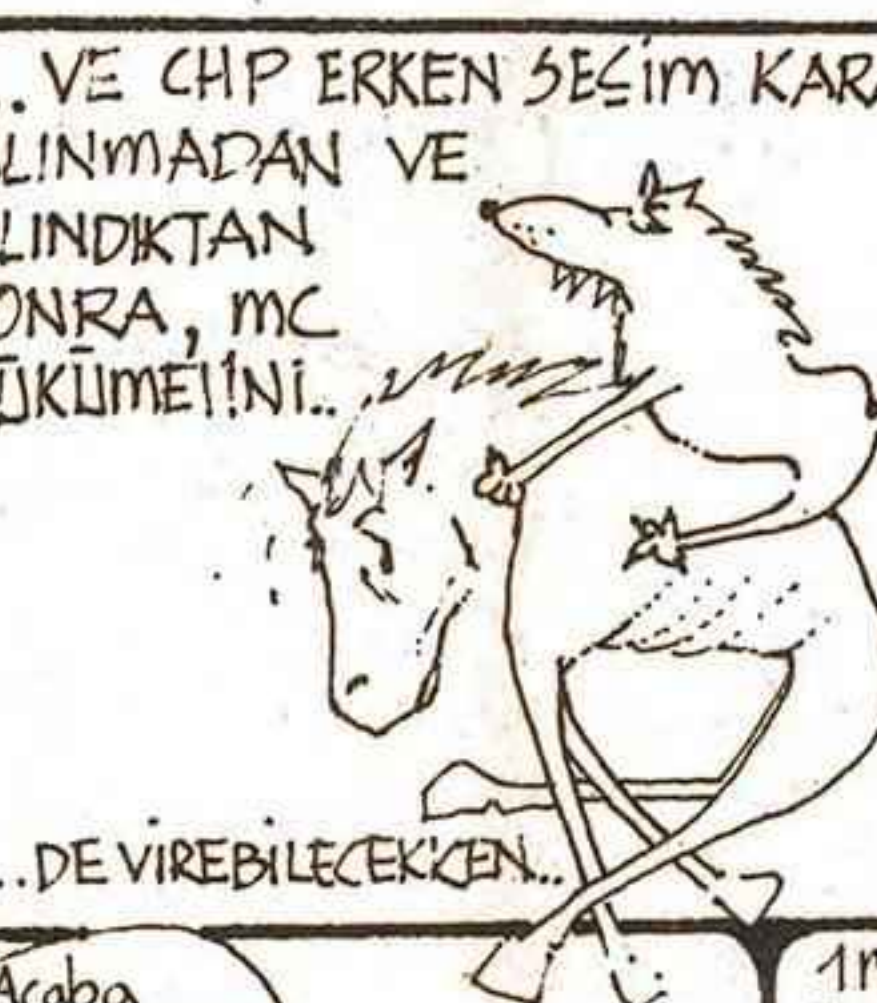 ..VE CHP ERKEN SEÇİM KARA
LINMADAN VE
LINDIKTAN
ONRA, MC
ÜKÜMETİNİ..
..DEVİREBİLECEK'KEN..
Acaba
1